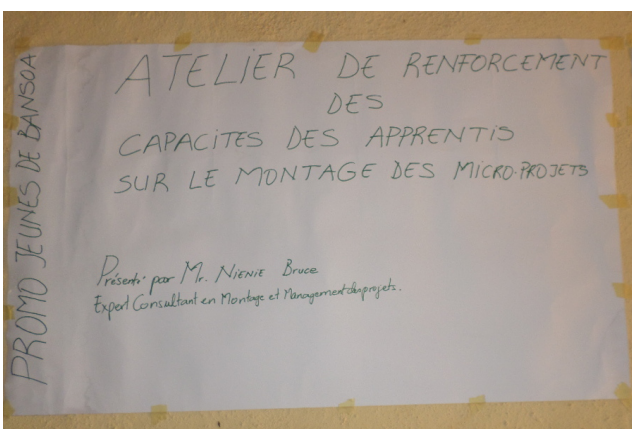 PROMO JEUNES DE BANSOA
ATELIER DE RENFORCEMENT
DES
CAPACITES DES APPRENTIS
SUR LE MONTAGE DES MICRO-PROJETS
Présenté par Mr. NIENIE Bruce
Expert Consultant en Montage et Management des projets.